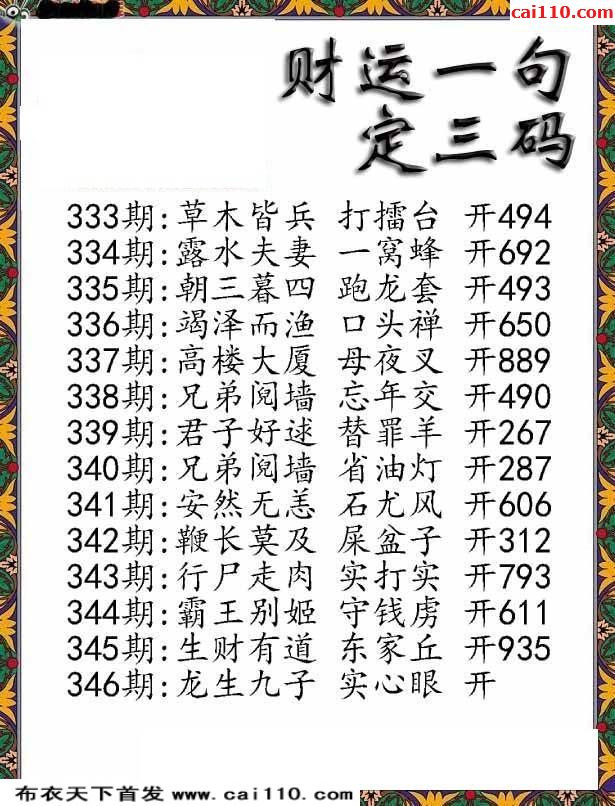 cai110.com
财运一句
定三码
333期:草木皆兵 打擂台 开494
334期:露水夫妻 一窝蜂 开692
335期:朝三暮四 跑龙套 开493
336期:竭泽而渔 口头禅 开650
337期:高楼大厦 母夜叉 开889
338期:兄弟阅墙 忘年交 开490
339期:君子好逑 替罪羊 开267
340期:兄弟阅墙 省油灯 开287
341期:安然无恙 石尤风 开606
342期:鞭长莫及 屎盆子 开312
343期:行尸走肉 实打实 开793
344期:霸王别姬 守钱虏 开611
345期:生财有道 东家丘 开935
346期:龙生九子 实心眼 开
布衣天下首发 www.cai110.com
cai110.com